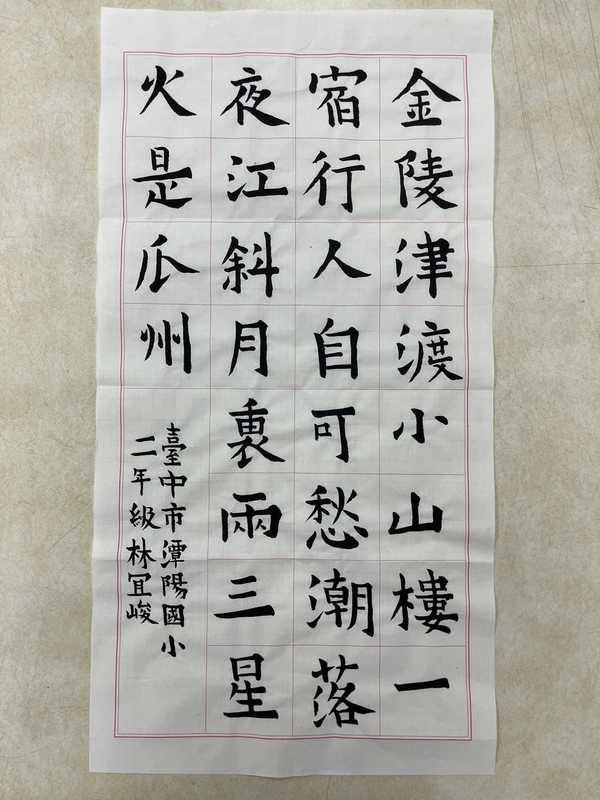 金陵津渡小山樓一
宿行人自可愁潮落
夜江斜月裏兩三星
火是瓜州
臺中市潭陽國小
二年級林宜峻